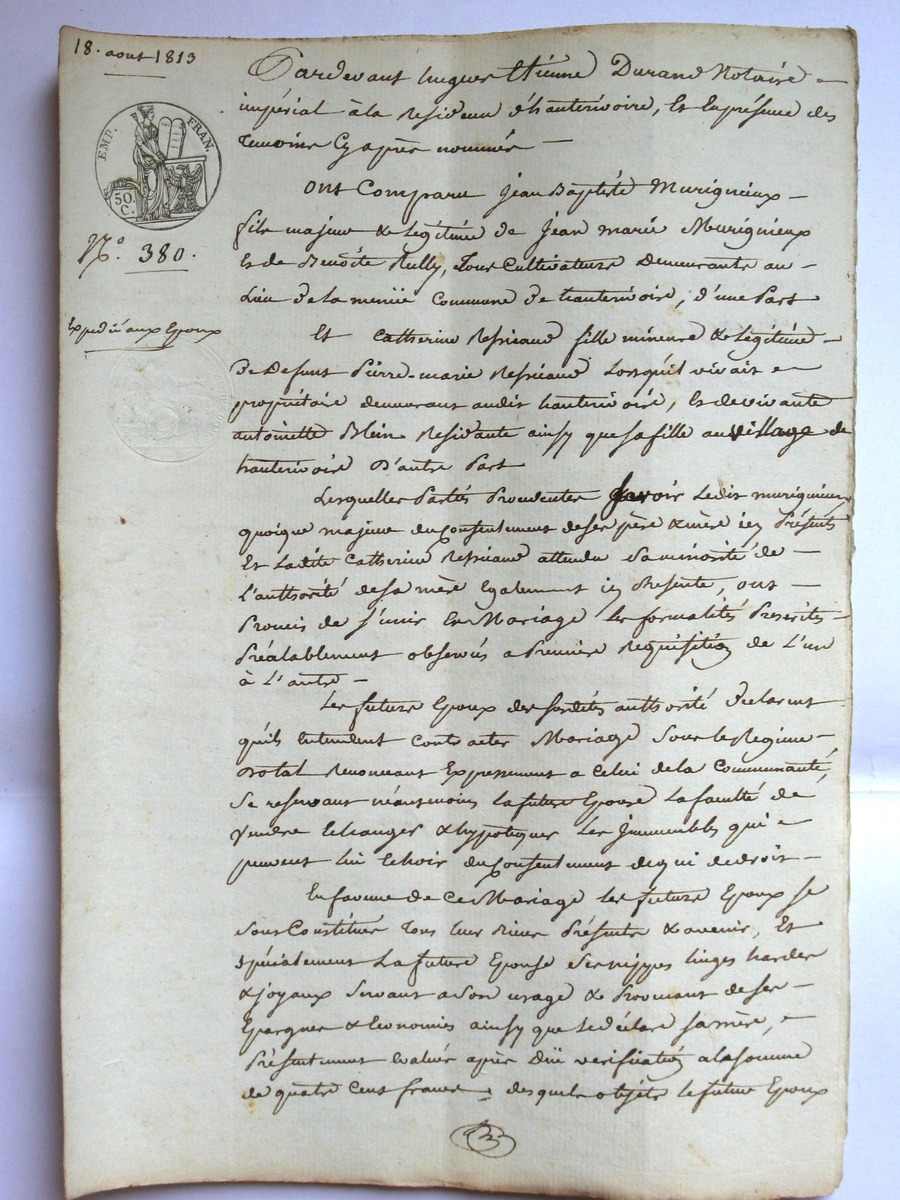 18. aout 1813
EMP. FRAN.
50 C.
N.º 380.
Expedié aux Epoux
Pardevant hugues Etienne Durand Notaire
impérial à la Residence d'hauterivoire, Et En présence des
temoins Cy après nommés
Ont Comparu jean Baptiste Murigneux
fils majeur & Légitime de jean marie Murigneux
Et de Benoite Rully, tous Cultivateurs Demeurants au
Lieu de la Commune de hauterivoire, d'une Part
Et Catherine fille mineure & Légitime
de Defunt Pierre-marie Lorsqu'il vivait
propriétaire demeurant audit hauterivoire, Et de vivante
antoinette Blein Residante ainsy que sa fille au village de
hauterivoire D'autre Part
Lesquelles Parties Procedentes Savoir Ledit murigneux
quoique majeur du Consentement de ses père & mère icy Présents
Et Ladite Catherine attendu Sa minorité de
L'authorité de sa mère Egalement icy Presente, ont
Promis de s'unir En Mariage les formalités Prescrites
Préalablement observés a Première Requisition de L'un
à L'autre
Les future Epoux des susdites authorité Declarent
quils Entendent Contracter Mariage Sous le Régime
Dotal Renonceant Expressement a Celui de la Communauté,
Se reservant néansmoins La future Epouse La faculté de
Vendre Echanger & hypotéquer Les jmmeubles qui
peuvent lui Echoir du Consentement de qui de droit
En faveur de Ce Mariage les future Epoux se
sont Constitués tous leur Biens Présents & avenir, Et
spécialement La future Epouse Ses nippes linges hardes
& joyaux Servant a Son usage & Provenant de ses
Epargnes & Economies ainsy que Le déclare sa mère,
Présentement Evalués après Düe vérification a la somme
de quatre Cent francs, desquels objets le future Epoux